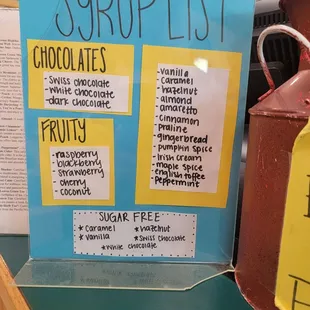 SYRUP LIST
CHOCOLATES
- Swiss chocolate
- white chocolate
- dark chocolate
FRUITY
- raspberry
- blackberry
- strawberry
- cherry
- coconut
- vanilla
- caramel
- hazelnut
- almond
- amaretto
- cinnamon
- praline
- gingerbread
- pumpkin spice
- Irish cream
- maple spice
- english toffee
- peppermint
SUGAR FREE
* caramel * hazelnut
* vanilla * Swiss chocolate
* white chocolate